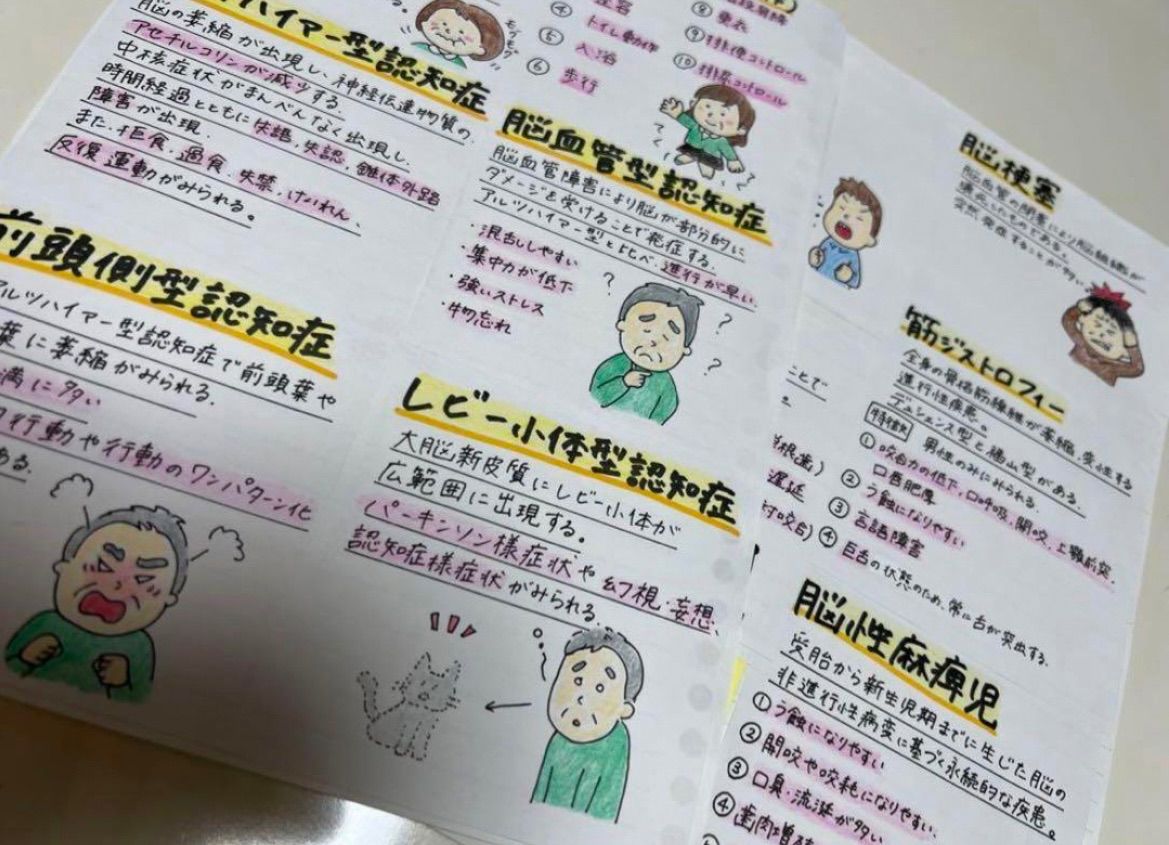 ハイマー型認知症
脳の萎縮が出現し、神経伝達物質の
アセチルコリンが減少する。
中核症状がまんべんなく出現し、
時間経過とともに失語、失認、錐体外路
障害が出現。
また、拒食、過食、失禁、けいれん、
反復運動がみられる。
モグモグ
前頭側型認知症
アルツハイマー型認知症で前頭葉や
葉に萎縮がみられる。
満に多い
行動や行動のワンパターン化
ある。
④
トイレ動作
⑤ 入浴
⑥ 歩行
⑧ 更衣
⑨ 排便コントロール
⑩ 排尿コントロール
脳血管型認知症
脳血管障害により脳が部分的に
ダメージを受けることで発症する。
アルツハイマー型と比べ、進行が早い。
・混乱しやすい
・集中力が低下
・強いストレス
・物忘れ
?
?
?
レビー小体型認知症
大脳新皮質にレビー小体が
広範囲に出現する。
パーキンソン様症状や幻視・妄想、
認知症様症状がみられる。
脳梗塞
脳血管の閉塞により脳組織が
壊死したものである。
突然発症することが多い。
ことで
。
遅延
筋ジストロフィー
全身の骨格筋線維が萎縮、変性する
進行性疾患。
デュシェンヌ型と福山型がある。
特徴 男性のみにみられる。
① 咬合力の低下、口呼吸、開咬、上顎前突、
口唇肥厚
② う蝕になりやすい
③ 言語障害
④ 巨舌の状態のため、常に舌が突出する。
脳性麻痺児
受胎から新生児期までに生じた脳の
非進行性病変に基づく永続的な疾患。
① う蝕になりやすい
② 開咬や咬耗になりやすい
③ 口臭・流涎が多い
④ 歯肉増殖